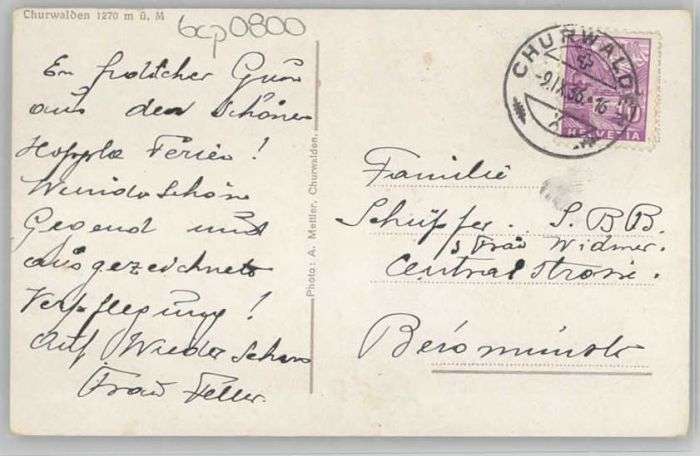 Churwalden 1270 m ü. M
bcp0800
Ein frölicher Gruss
aus den schönen
Hoppla Ferien!
Wunderschöne
Gegend und
ausgezeichnete
Verpflegung!
Auf Wiedersehen
Frau Feller.
Photo: A. Mettler, Churwalden.
CHURWALDEN
-9.IX.36.-16
HELVETIA
Familie
Schüpfer. S.B.B.
Frau Widmer.
Centralstrasse.
Beromünster